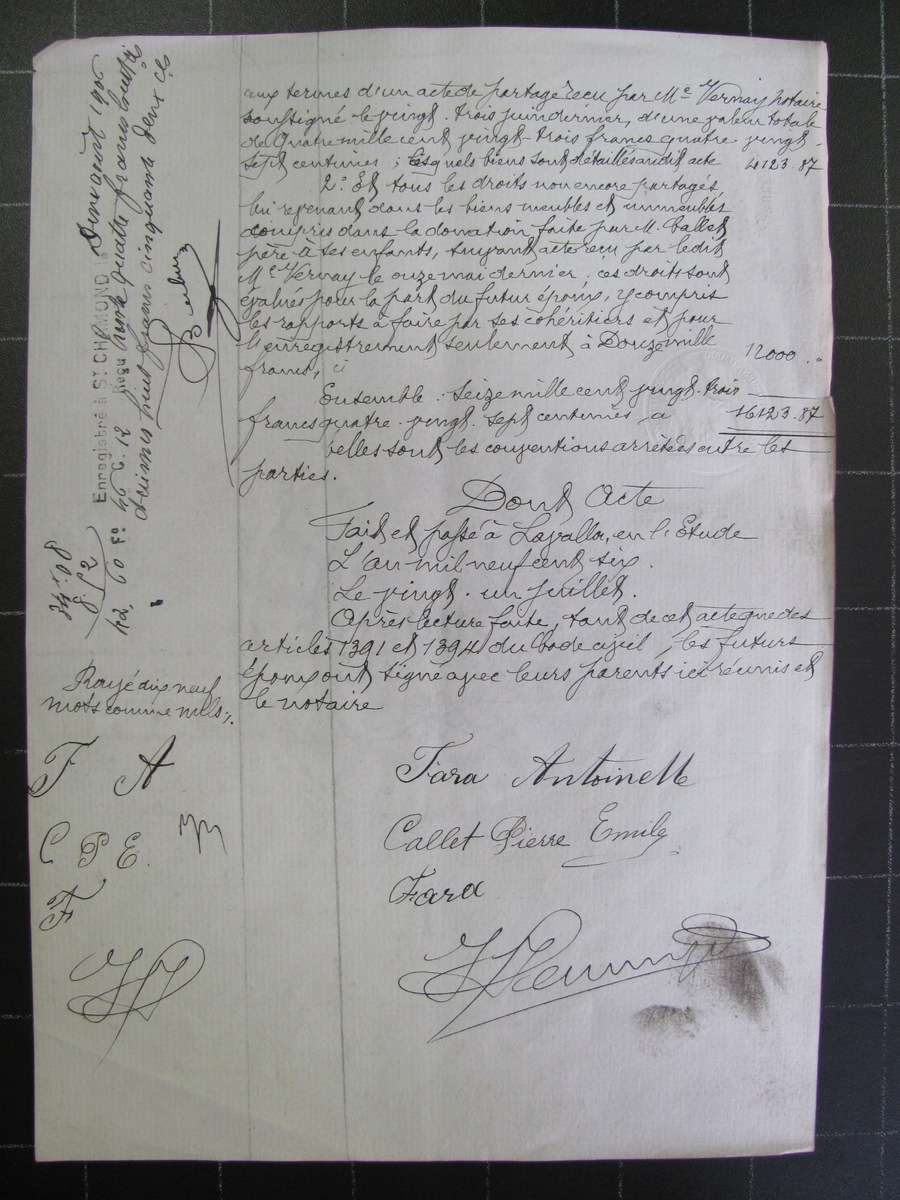 aux termes d'un acte de partage reçu par Me Vernay notaire
soussigné le vingt-trois juin dernier, d'une valeur totale
de Quatre mille cent vingt-trois francs quatre vingt
sept centimes ; lesquels biens sont détaillés audit acte 4123.87
2° Et tous les droits non encore partagés,
lui revenant dans les biens meubles et immeubles
compris dans la donation faite par M. Callet
père à ses enfants, suivant acte reçu par ledit
Me Vernay le onze mai dernier. ces droits sont
évalués pour la part du futur époux, y compris
les rapports à faire par ses cohéritiers et pour
l'enregistrement seulement à Douze mille
francs, ci 12000 . "
Ensemble : Seize mille cent vingt-trois
francs quatre-vingt-sept centimes, a 16123.87
Telles sont les conventions arrêtées entre les
parties.
Dont Acte
Fait et passé à Lavalla, en l'Etude
L'an mil neuf cent six.
Le vingt-un juillet.
Après lecture faite, tant de cet acte que des
articles 1391 et 1394 du Code civil, les futurs
époux ont signé avec leurs parents ici réunis et
le notaire
Enregistré à St CHAMOND le Deux août 1906
42. 60 F° 46 C. 12 Reçu trente quatre francs huit cs
décimes huit francs cinquante deux cs
34.08
8.52
Rayé dix neuf
mots comme nuls ;.
F A
C P E.
F
Fara Antoinette
Callet Pierre Emile
Fara